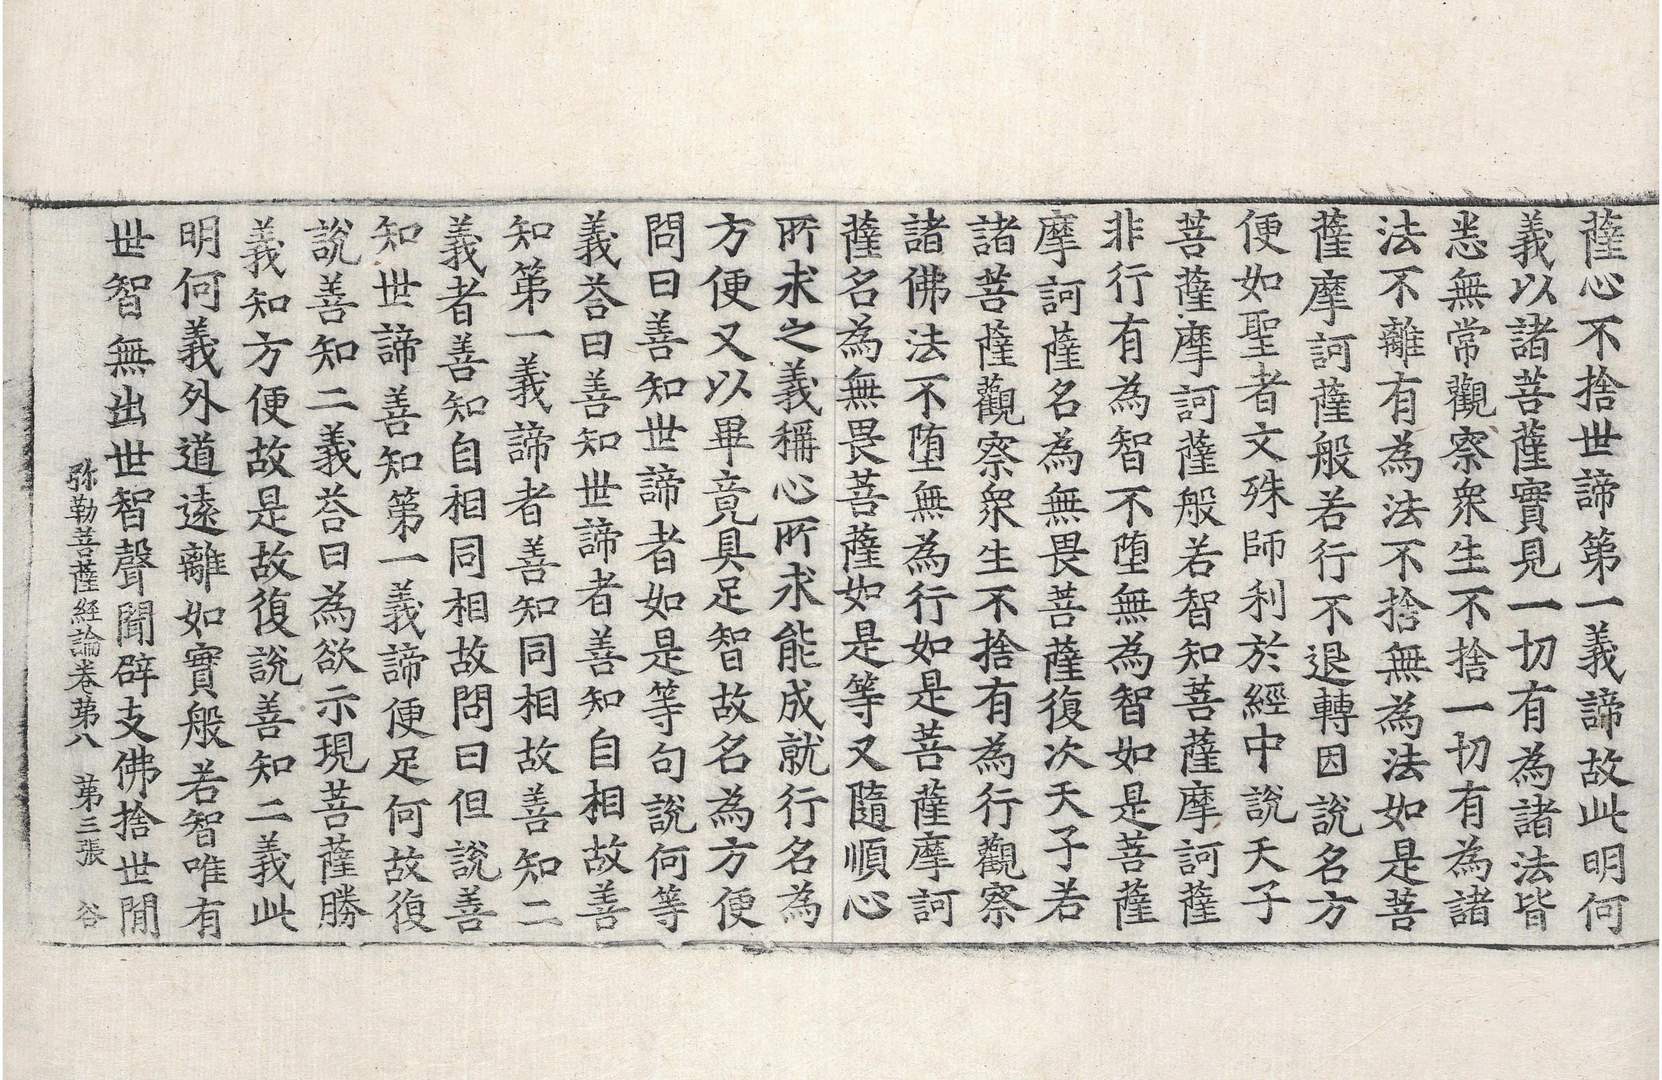 薩心不捨世諦第一義諦故此明何
義以諸菩薩實見一切有為諸法皆
悉無常觀察衆生不捨一切有為諸
法不離有為法不捨無為法如是菩
薩摩訶薩般若行不退轉因說名方
便如聖者文殊師利於經中說天子
菩薩摩訶薩般若智知菩薩摩訶薩
非行有為智不墮無為智如是菩薩
摩訶薩名為無畏菩薩復次天子若
諸菩薩觀察衆生不捨有為行觀察
諸佛法不墮無為行如是菩薩摩訶
薩名為無畏菩薩如是等又隨順心
所求之義稱心所求能成就行名為
方便又以畢竟具足智故名為方便
問曰善知世諦者如是等句說何等
義荅曰善知世諦者善知自相故善
知第一義諦者善知同相故善知二
義者善知自相同相故問曰但說善
知世諦善知第一義諦便足何故復
說善知二義荅曰為欲示現菩薩勝
義知方便故是故復說善知二義此
明何義外道遠離如實般若智唯有
世智無出世智聲聞辟支佛捨世閒
弥勒菩薩經論卷苐八　苐三張　谷